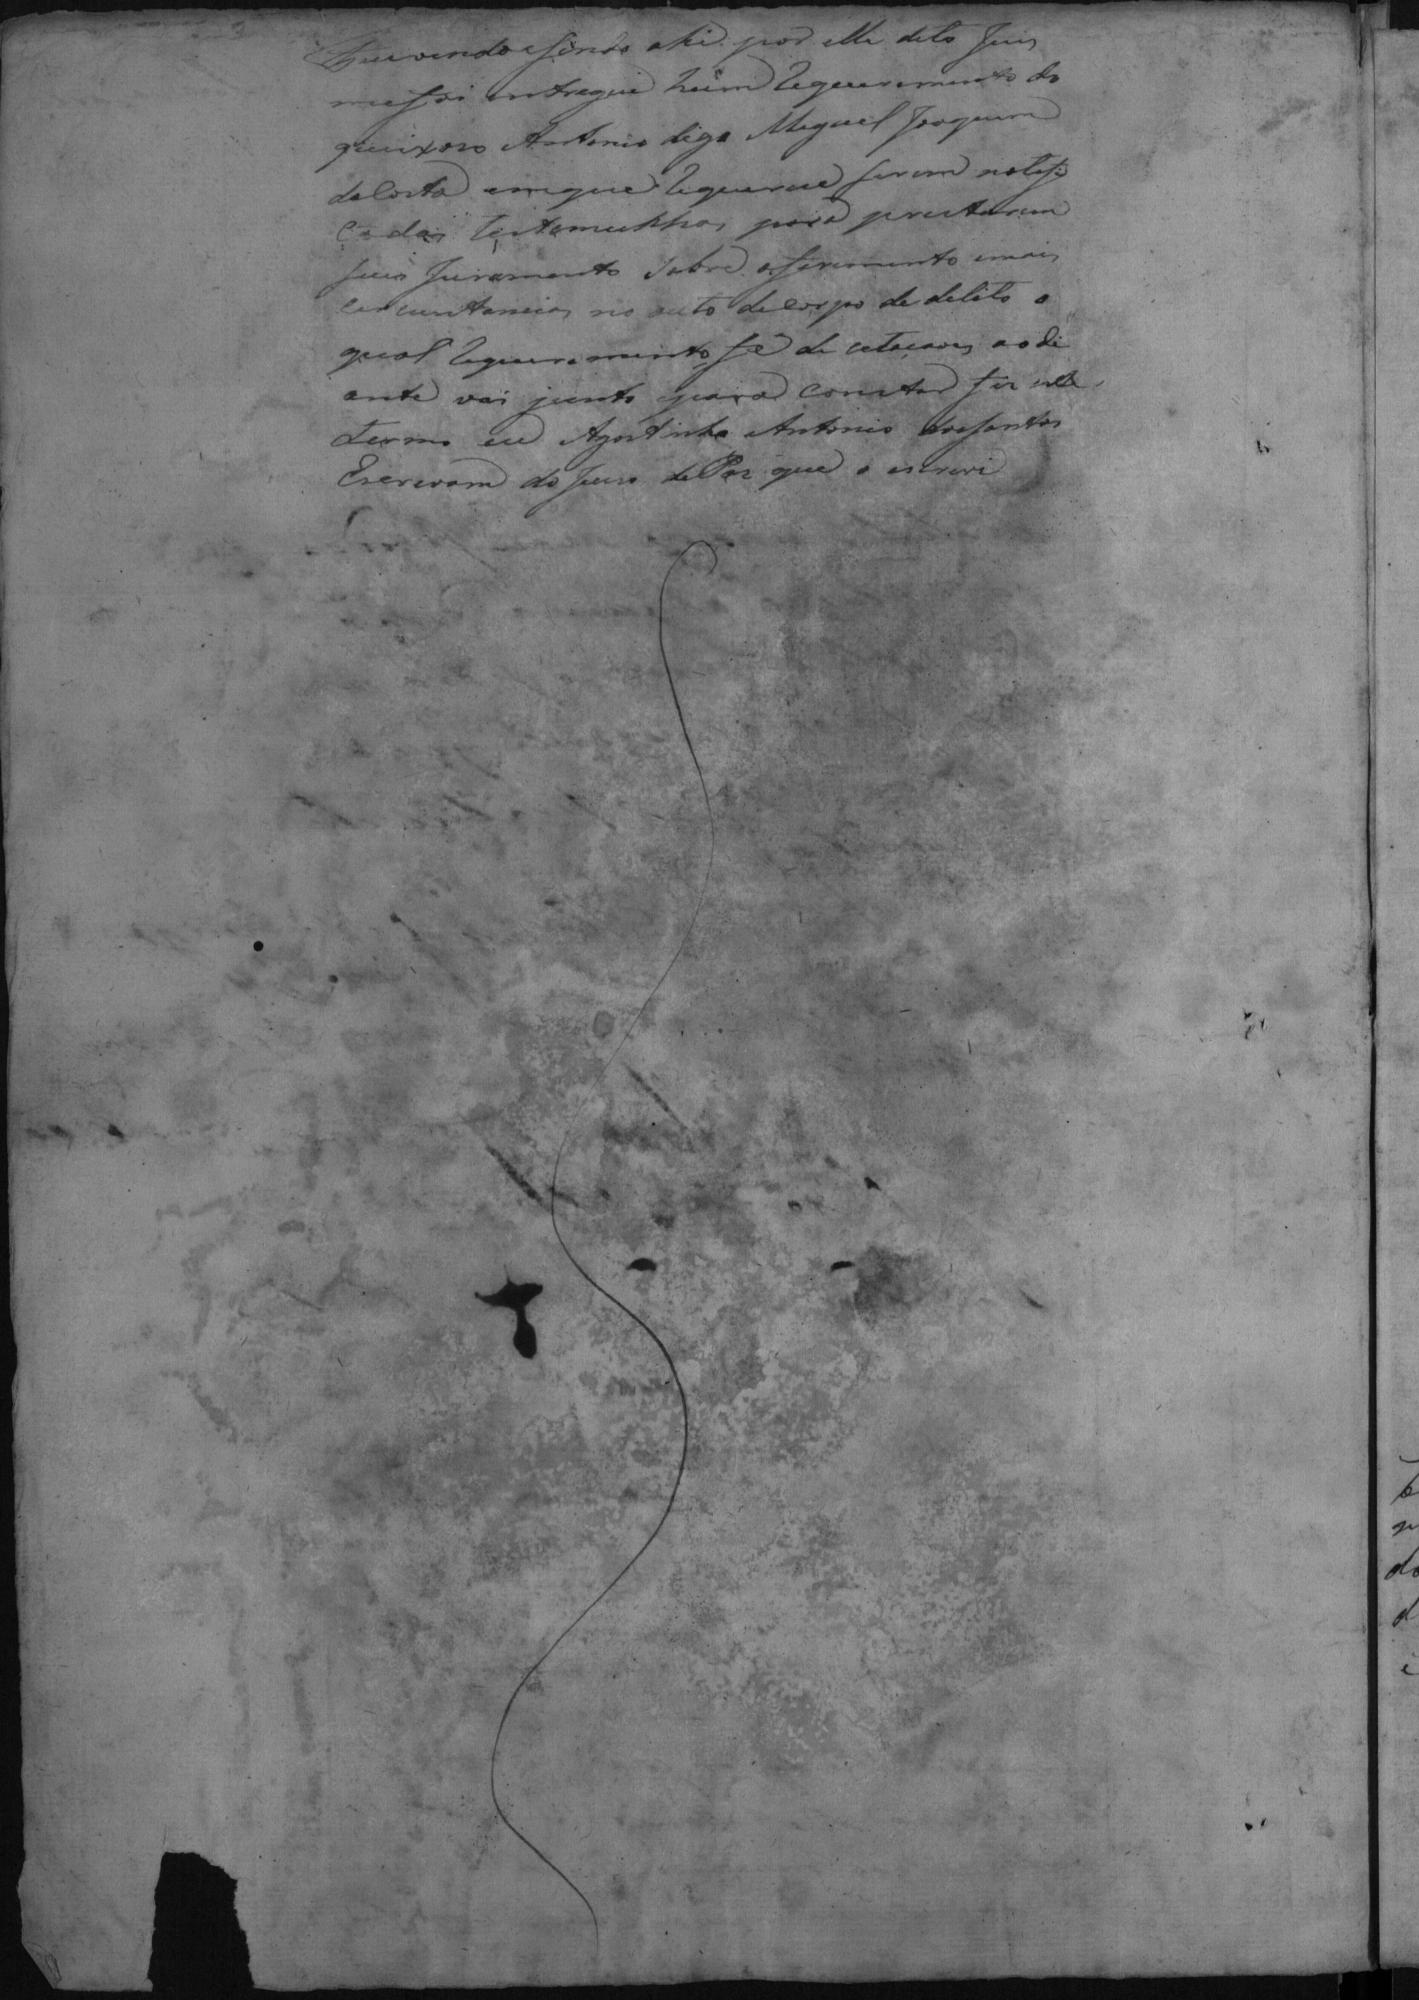 vindo e sendo ahi por elle dito Juis
me foi entregue hum Requerimento do
queixozo Antonio digo Miguel Joaquim
da Costa em que Requereu serem notefi
cadas testemunhas para prestarem
seus Juramento sobre o ferimento e mais
circunstancias no auto de corpo de delito o
qual Requeremento, fé de cetacoes ao di
ante vai junto para constar fis este
termo eu Agostinho Antonio dos Santos
Escrivam do Juizo de Paz que o escrevi